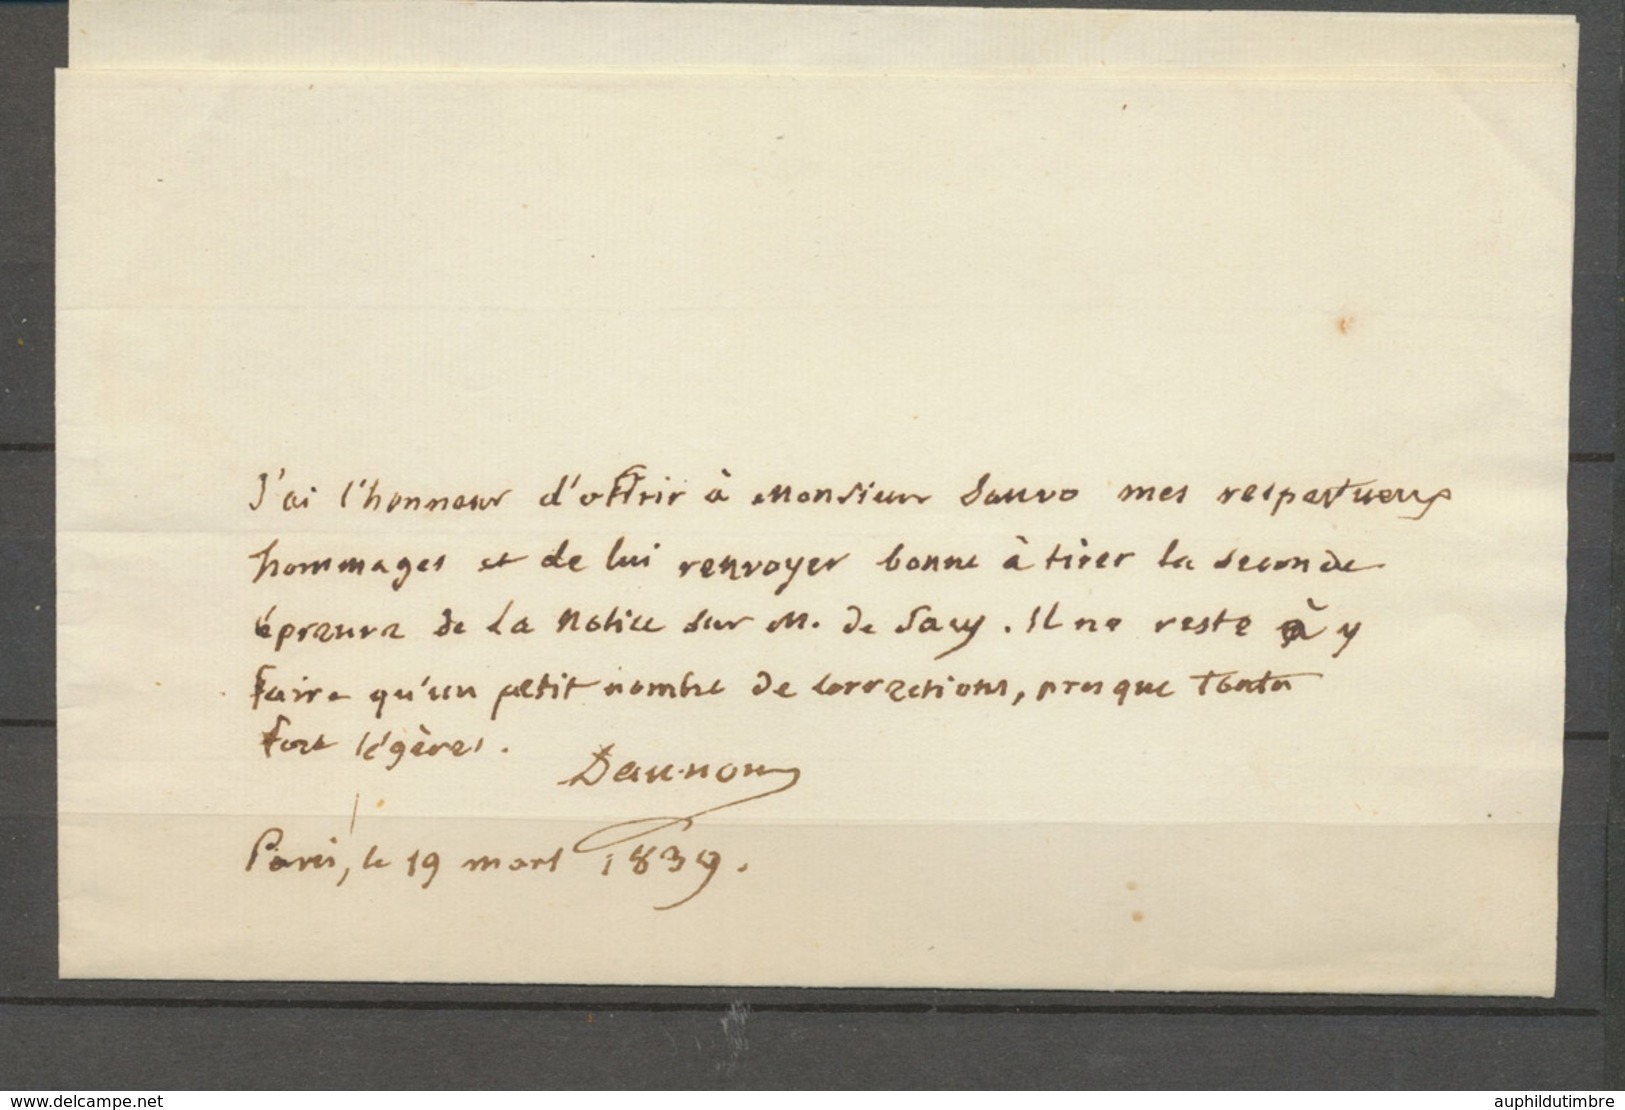 J'ai l'honneur d'offrir à Monsieur Sauvo mes respectueux
hommages et de lui renvoyer bonne à tirer la seconde
épreuve de la Notice sur M. de Sacy. Il ne reste à y
faire qu'un petit nombre de corrections, presque toutes
fort légères.
Daunou
Paris, le 19 mars 1839.
www.delcampe.net
auphildutimbre